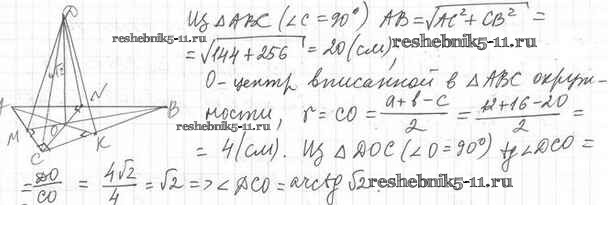 Из △ABC (∠C = 90°) AB = √AC² + CB² =
= √144 + 256 = 20 (см),
reshebnik5-11.ru
O - центр вписанной в △ABC окруж-
ности, r = CO = a+b-c/2 = 12+16-20/2 =
reshebnik5-11.ru
= 4 (см). Из △DOC (∠O = 90°) tg∠DCO =
= DO/CO = 4√2/4 = √2 => ∠DCO = arctg √2.
reshebnik5-11.ru
D
√2
N
A
B
M
O
C
K